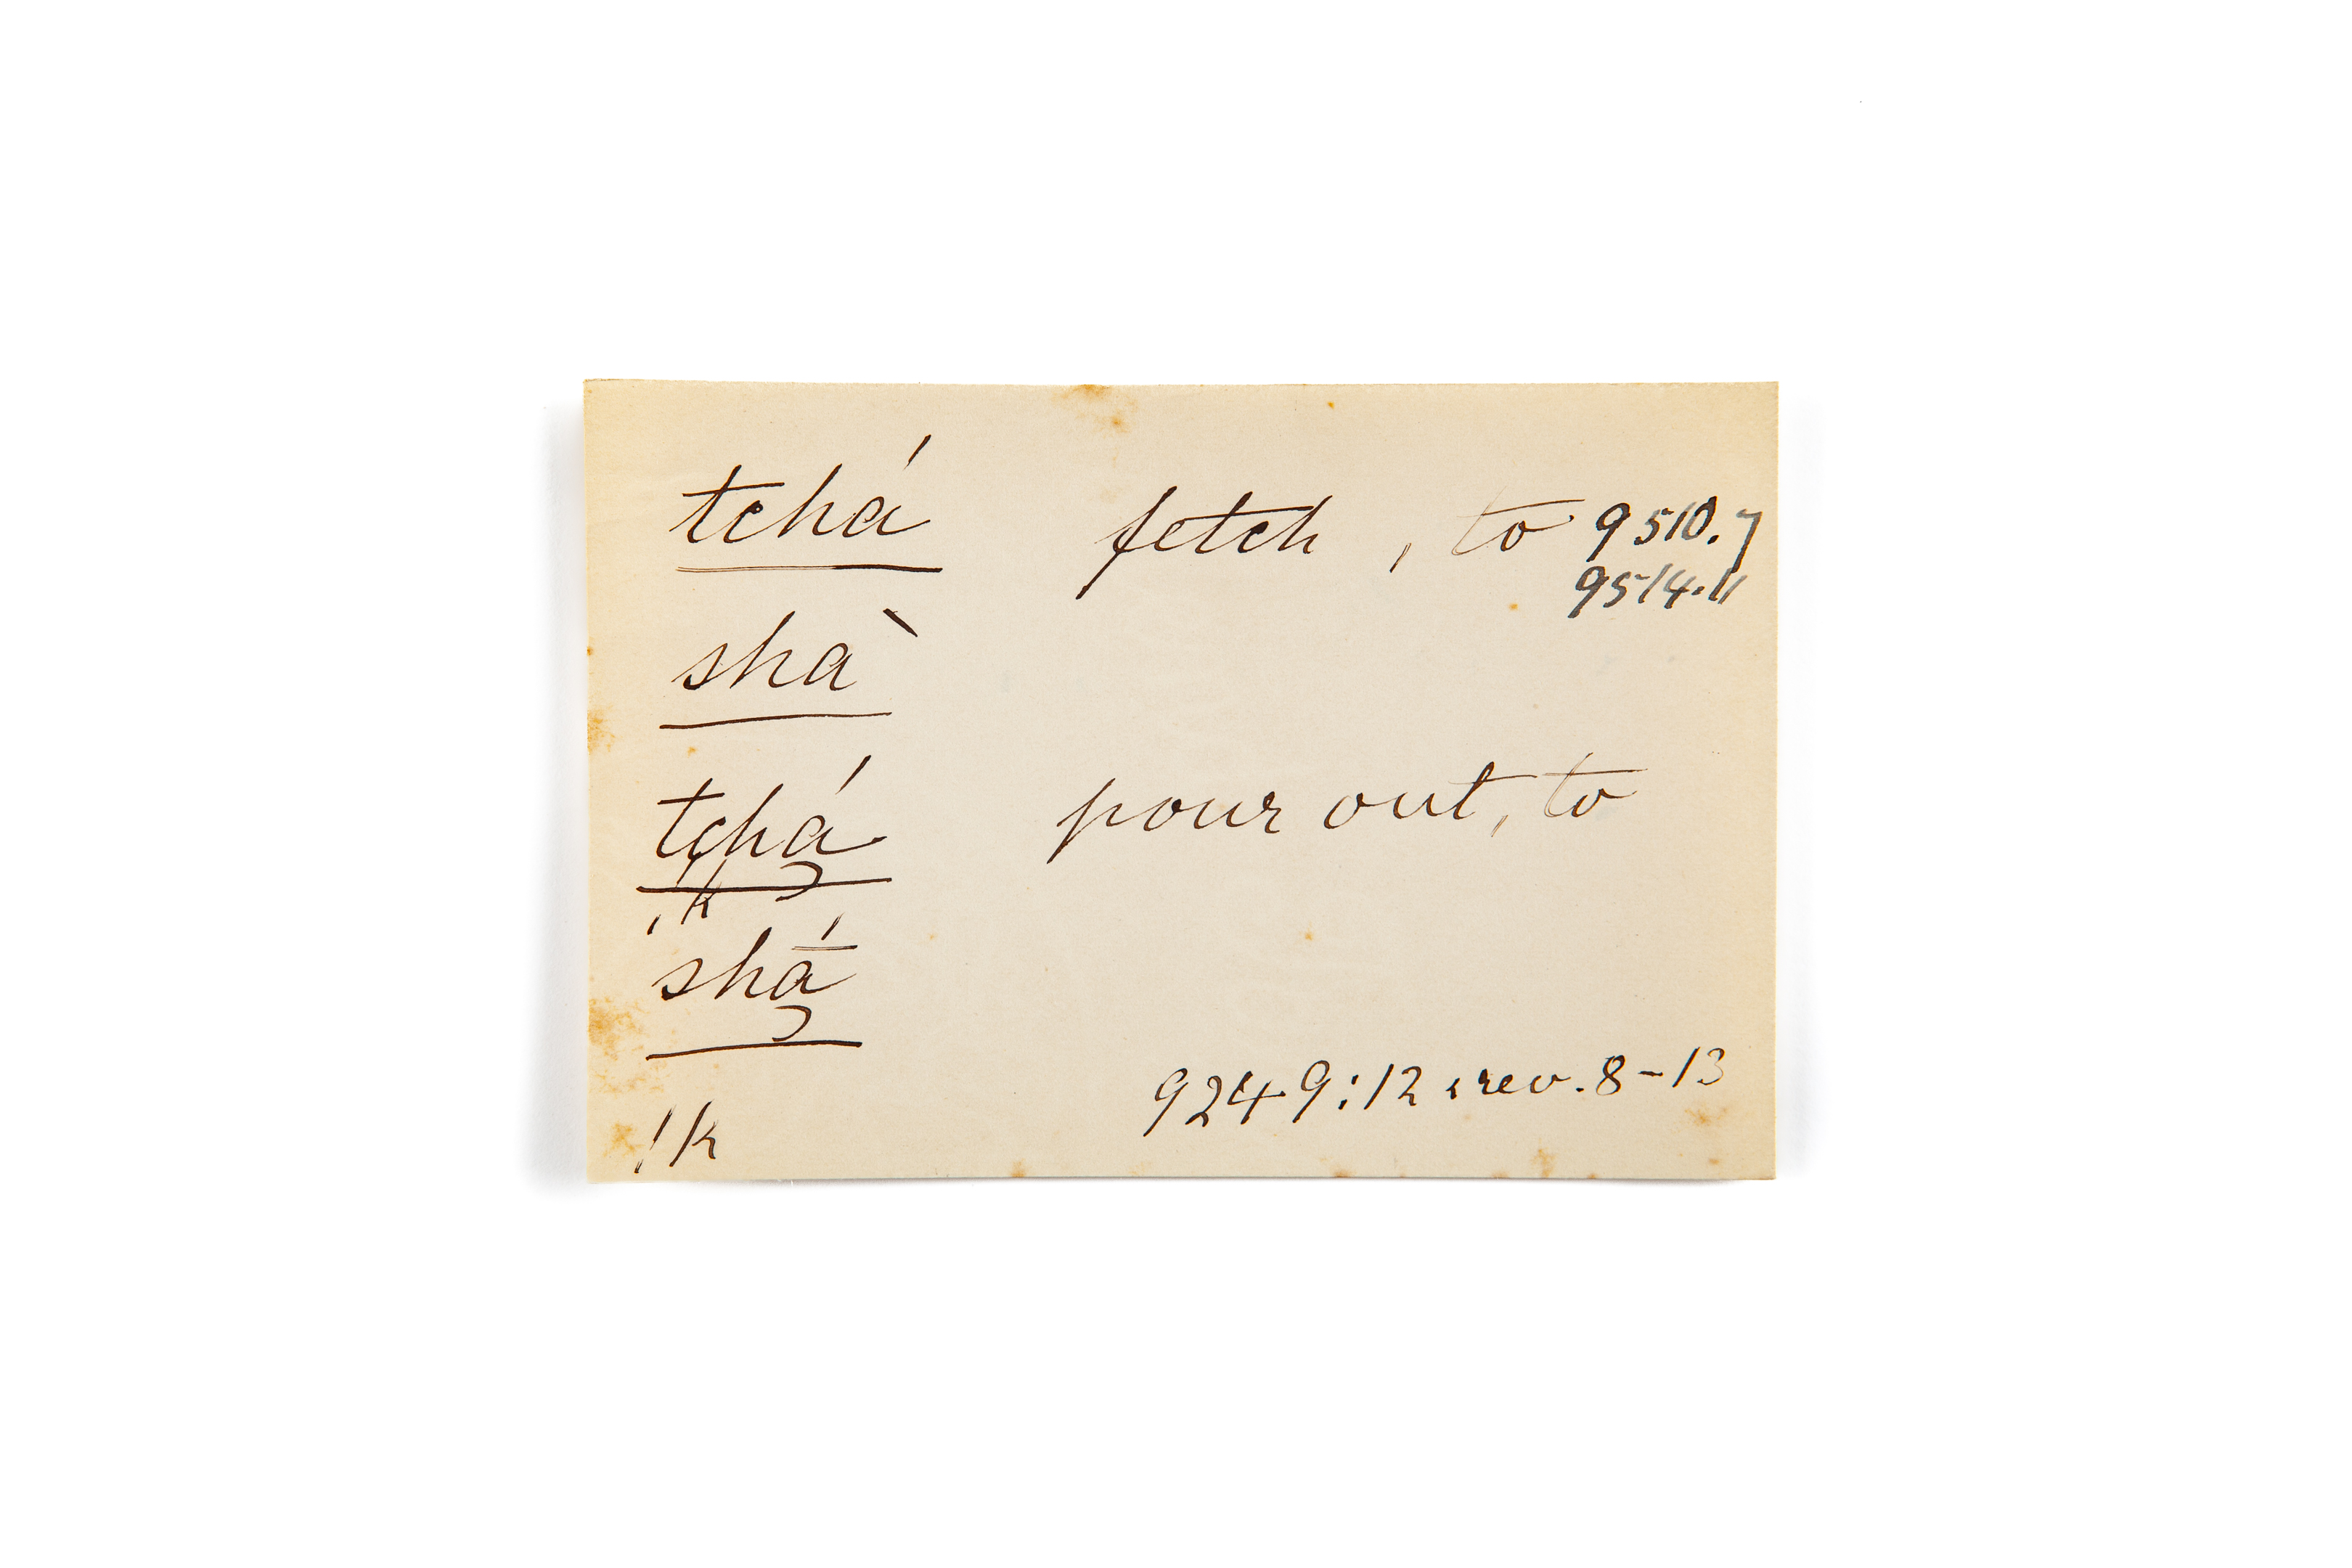 tchá fetch , to 9510.7
9514.11
shà
tchá pour out, to
!k
shā́
9249:12 & rev. 8-13
!k